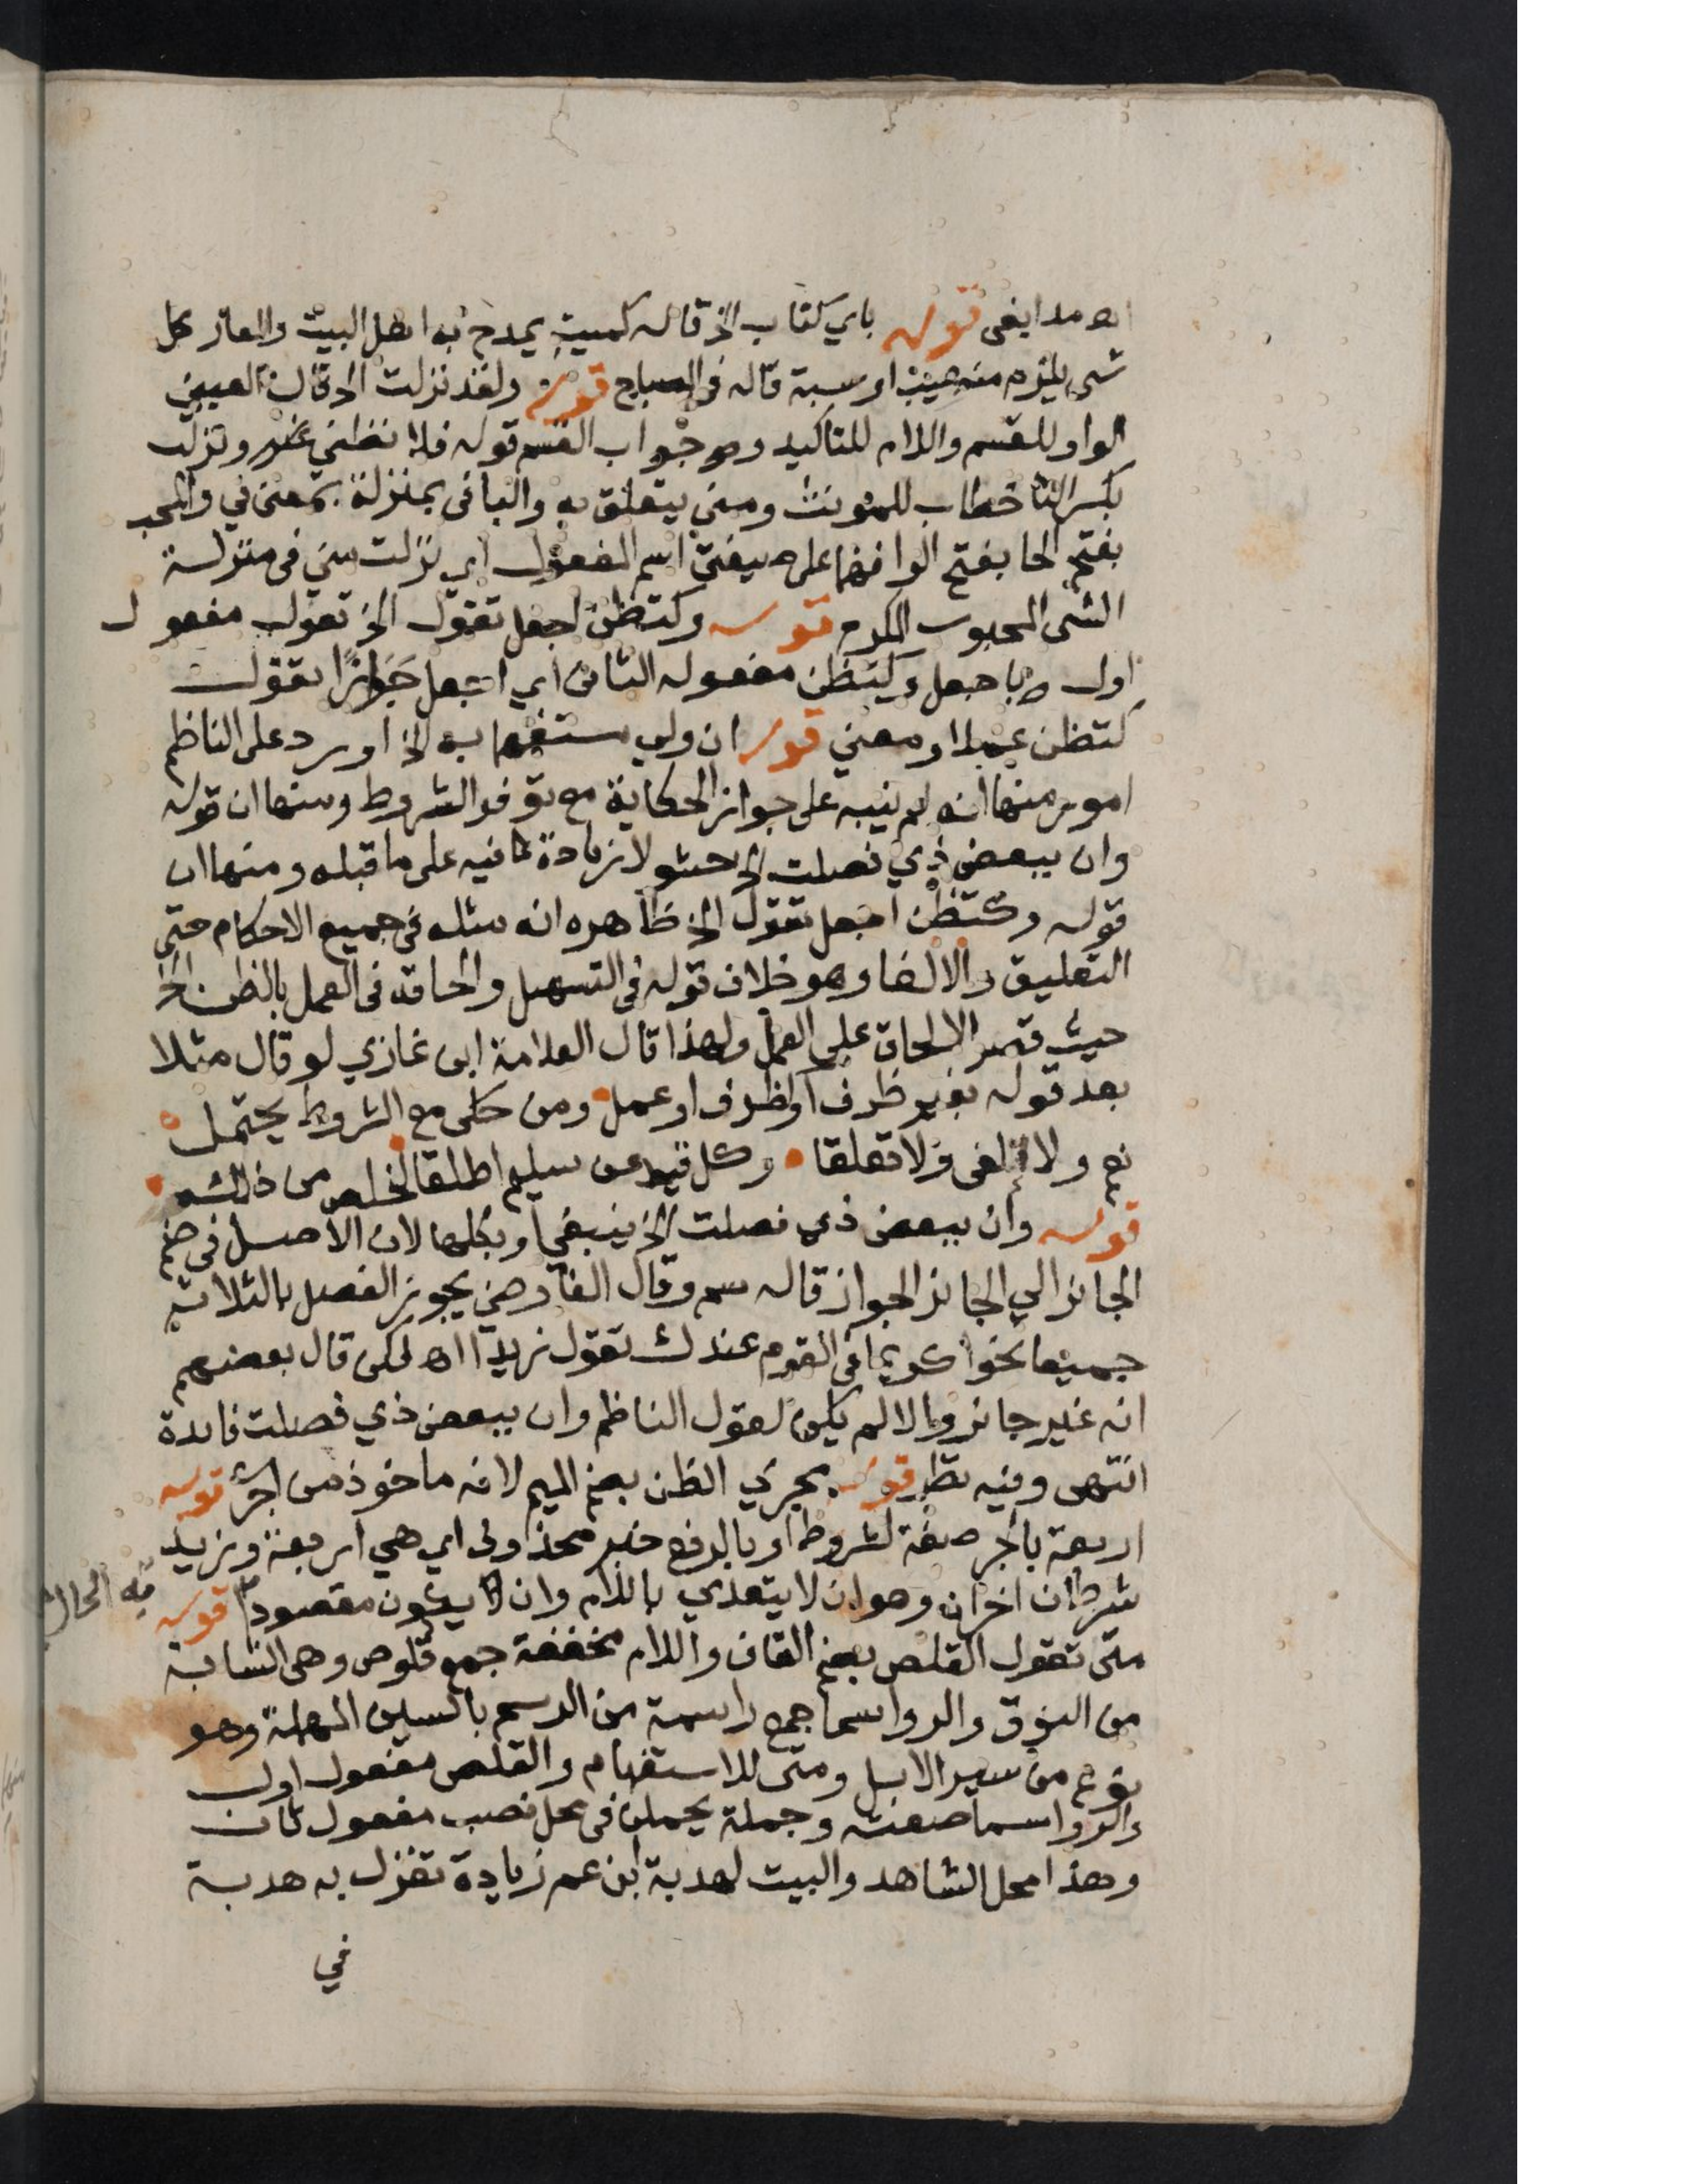 اه مدابغى قوله باي كتاب الخ قاله كميت يمدح به اهل البيت والعار كل
شي يلزم منه عيب او سبة قاله في المصباح قوله ولقد نزلت الخ قال العيني
الواو للقسم واللام للتاكيد وهو جواب القسم قوله فلا تظني غيره ونزلت
بكسر التا خطاب للمونث ومني يتعلق به والبا فى بمنزلة بمعنى في والمحب
بفتح الحا بفتح الوا فيهما على صيغة اسم المفعول اي نزلت مني فى منزلة
الشى المحبوب المكرم قوله وكتظن اجعل تقول الخ تقول مفعول
اول با جعل وكتظن مفعوله الثانى اي اجعل جَوَازًا تقول
كتظن عملا ومعني قوله ان ولي مستفهما به الخ اورد على الناظم
امور منها انه لم ينبه على جواز الحكاية مع توفر الشروط ومنها ان قوله
وان ببعض ذي فصلت الخ حشو لا زيادة فيه على ما قبله ومنها ان
قوله وكتظن اجعل تقول الخ ظاهره انه مثله فى جميع الاحكام حتى
التعليق والالغا وهو خلاف قوله فى التسهيل والحاقه فى العمل بالظن الخ
حيث قصر الالحاق على العمل ولهذا قال العلامة ابن غازي لو قال مثلا
بعد قوله بغير ظرف او كظرف او عمل ومن حكى مع الشروط يحتمل
نعم ولا تلغى ولا تعلقا وكل قيد عن سليم اطلقا لخلص من ذلك
قوله وان ببعض ذي فصلت الخ ينبغي او بكلها لان الاصل فى ضم
الجائز الي الجائز الجواز قاله سم وقال الفارضي يجوز الفصل بالثلاثة
جميعا نحو اكريما فى القوم عندك تقول زيدا اه لكن قال بعضهم
انه غير جائز والا لم يكن لقول الناظم وان ببعض ذي فصلت فائدة
انتهى وفيه نظر قوله مجري الظن بضم الميم لانه ماخوذ من اجري قوله
اربعة بالجر صفة لشروط او بالرفع خبر محذوف اي هي اربعة وزيد
شرطان اخران وهو ان لا يتعدي باللام وان لا يكون مقصودا به الحال قوله
متى تقول القلص بضم القاف واللام مخففة جمع قلوص وهى الشابة
من النوق والرواسما جمع راسمة من الرسم بالسين المهملة وهو
نوع من سير الابل ومتى للاستفهام والقلص مفعول اول
والرواسما صفته وجملة يحملن فى محل نصب مفعول ثان
وهذا محل الشاهد والبيت لهدبة ابن عم زيادة تغزل به هدبة
في